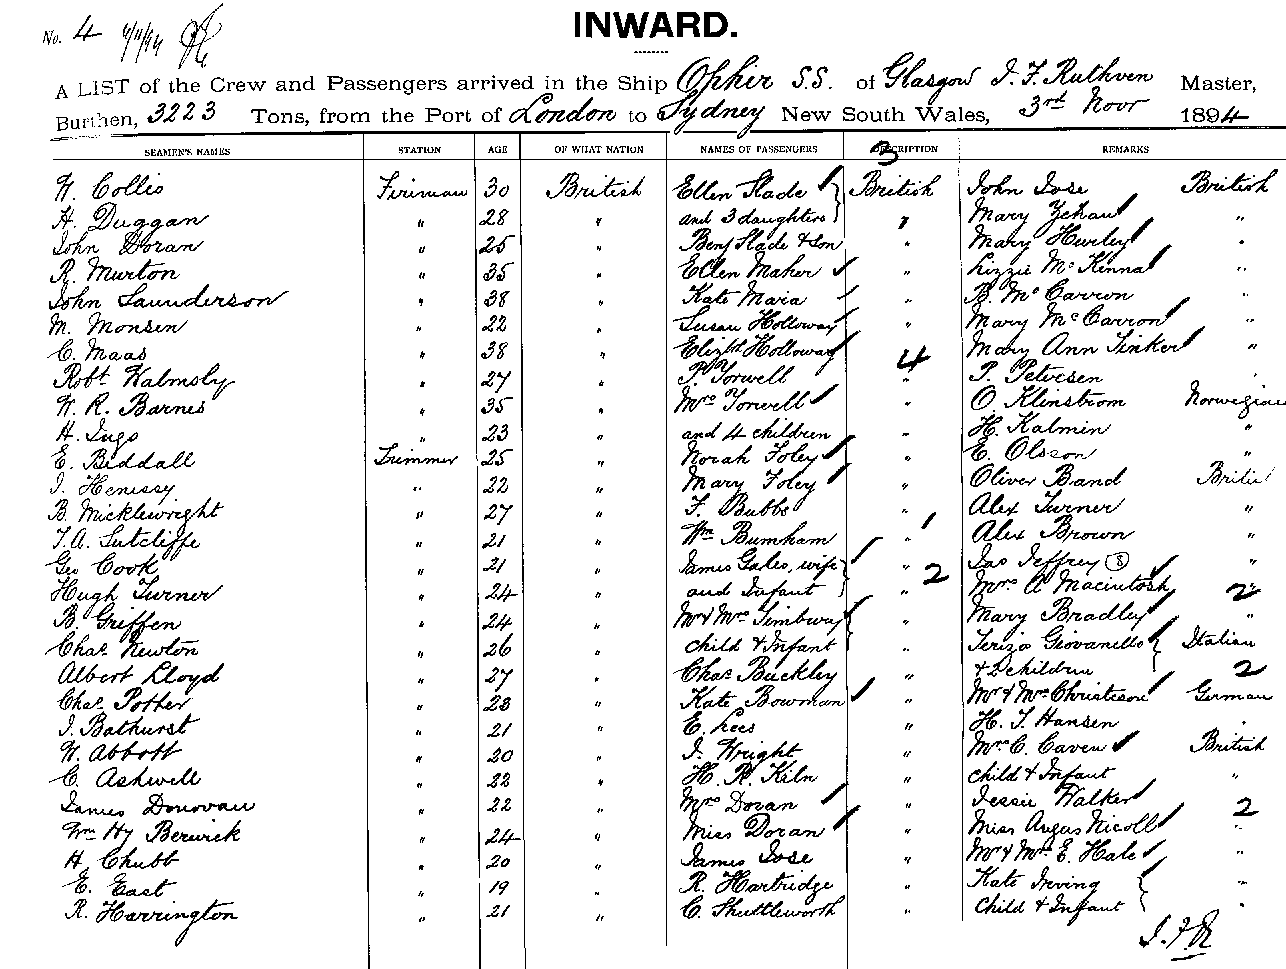 No. 4
INWARD.
A LIST of the Crew and Passengers arrived in the Ship Ophir S.S. of Glasgow J. F. Ruthven Master,
Burthen, 3223 Tons, from the Port of London to Sydney New South Wales, 3rd Novr 1894
SEAMEN'S NAMES STATION AGE OF WHAT NATION NAMES OF PASSENGERS DESCRIPTION REMARKS
3
W. Collis Fireman 30 British Ellen Slade British John Jose British
H. Duggan " 28 " and 3 daughters " Mary "
John Doran " 25 " Benj Slade & Son " Mary Hurley "
R. Murton " 35 " Ellen Maher " Lizzie McKenna "
John Saunderson " 38 " Kate Maria " B. McCarron "
M. Monsen " 22 " Susan Holloway " Mary McCarron "
C. Maas " 38 " Elizbth Holloway 4 Mary Ann Tinker "
Robt Walmsly " 27 " P. Torwell " P. Petersen "
W. R. Barnes " 35 " Mrs Torwell " O. Klinstrom Norwegian
H. Ings " 23 " and 4 children " H. Kalmin "
E. Biddall Trimmer 25 " Norah Foley " E. Olsson "
J. Henessy " 22 " Mary Foley " Oliver Band British
B. Micklewright " 27 " F. Bubbs " Alex Turner "
T. A. Sutcliffe " 21 " Wm Burnham " Alex Brown "
Geo Cook " 21 " James Gales, wife " 2 Jas Jeffrey (8) "
Hugh Turner " 24 " and Infant " Mrs A Macintosh 2 "
B. Griffen " 24 " Mr & Mrs Timbury " Mary Bradley "
Chas Newton " 26 " child & Infant " Teriza Giovanello Italian
Albert Lloyd " 27 " Chas Buckley " & 2 children 2
Chas Potter " 28 " Kate Bowman " Mr & Mrs Christison German
J. Bathurst " 21 " E. Lees " H. J. Hansen "
W. Abbott " 20 " J. Wright " Mrs C. Caven British
C. Ashwell " 22 " H. R. Kiln " child & Infant "
James Donovan " 22 " Mrs Doran " Jessie Walker 2
Wm Hy Berwick " 24 " Miss Doran " Miss Angas Nicoll "
H Chubb " 20 " James Jose " Mr & Mrs E. Hale "
E. East " 19 " R. Hartridge " Kate Irving "
R. Harrington " 21 " C. Shuttleworth " Child & Infant "
J. F. R